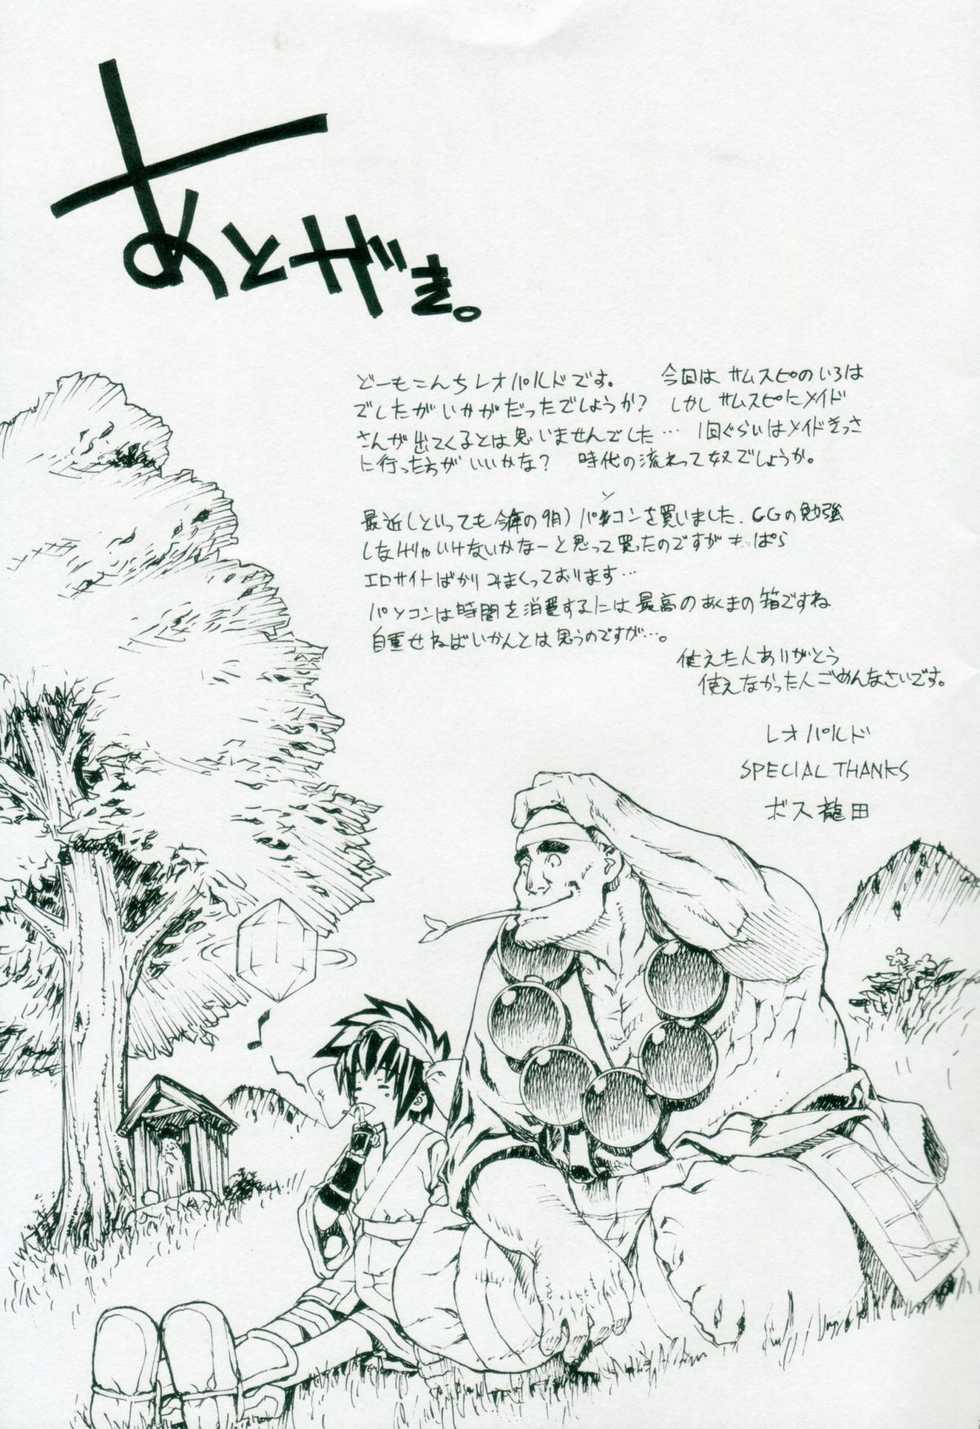 あとがき。
どーもこんちレオパルドです。 今回は サムスピのいろは
でしたがいかがだったでしょうか? しかし サムスピにメイド
さんが出てくるとは思いませんでした… 1回ぐらいはメイドきっさ
に行った方がいいかな? 時代の流れって奴でしょうか。
最近(といっても今年の9月)パソコンを買いました。CGの勉強
しなけりゃいけないかなーと思って買ったのですがもっぱら
エロサイトばかりみまくっております…
パソコンは時間を消費するには最高のあくまの箱ですね
自重せねばいかんとは思うのですが…。
使えた人ありがとう
使えなかった人ごめんなさいです。
レオパルド
SPECIAL THANKS
ボス龍田